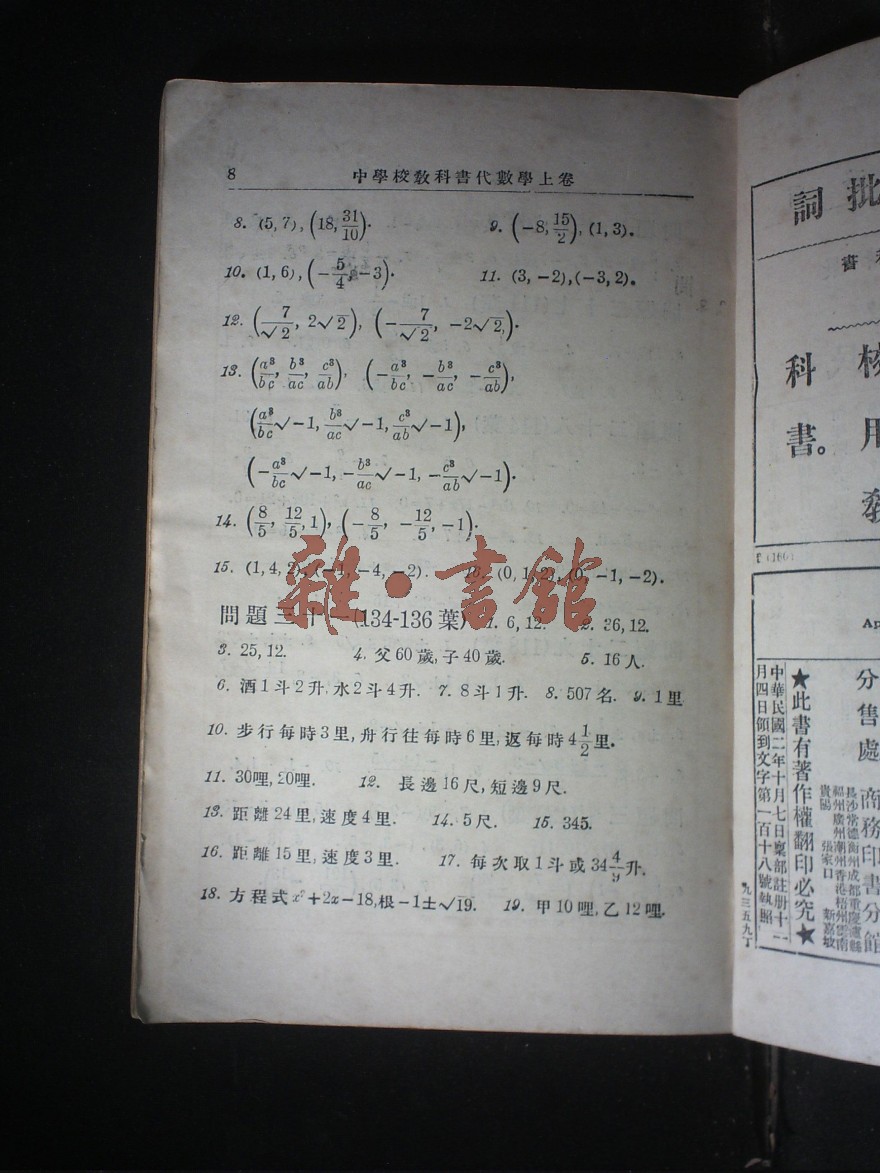 8 中學校教科書代數學上卷
8. (5, 7), (18, 31/10). 9. (-8, 15/2), (1, 3).
10. (1, 6), (-5/4, -3). 11. (3, -2), (-3, 2).
12. (7/√2, 2√2), (-7/√2, -2√2).
13. (a³/bc, b³/ac, c³/ab), (-a³/bc, -b³/ac, -c³/ab),
(a³/bc √-1, b³/ac √-1, c³/ab √-1),
(-a³/bc √-1, -b³/ac √-1, -c³/ab √-1).
14. (8/5, 12/5, 1), (-8/5, -12/5, -1).
15. (1, 4, 2), (-1, -4, -2). 16. (0, 1, 2), (0, -1, -2).
雜·書館
問題三十一 (134-136葉) 1. 6, 12. 2. 36, 12.
3. 25, 12. 4. 父60歲, 子40歲. 5. 16人.
6. 酒1斗2升, 水2斗4升. 7. 8斗1升. 8. 507名. 9. 1里
10. 步行每時3里, 舟行往每時6里, 返每時4 1/2里.
11. 30哩, 20哩. 12. 長邊16尺, 短邊9尺.
13. 距離24里, 速度4里. 14. 5尺. 15. 345.
16. 距離15里, 速度3里. 17. 每次取1斗或34 4/9升.
18. 方程式x²+2x-18, 根-1±√19. 19. 甲10哩, 乙12哩.
批
詞
校用教
科書。
(160)
Ap
分售處
商務印書分館
長沙常德衡州成都重慶瀘縣
福州廣州潮州香港梧州雲南
貴陽 張家口 新嘉坡
★此書有著作權翻印必究★
中華民國二年十月七日稟部註冊十二
月四日領到文字第一百十八號執照
九三五九丁